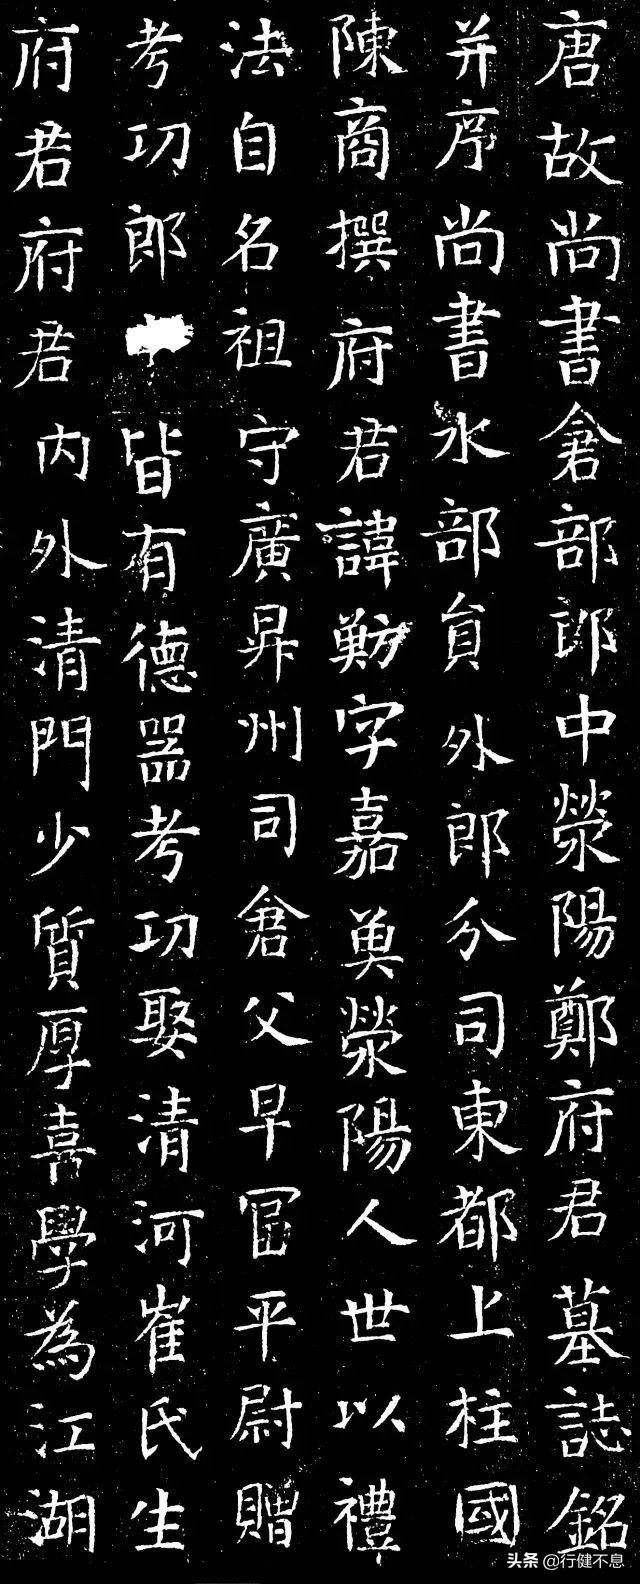 唐故尚書倉部郎中滎陽鄭府君墓誌銘
并序尚書水部員外郎分司東都上柱國
陳商撰府君諱魴字嘉魚滎陽人世以禮
法自名祖守廣昇州司倉父早冨平尉贈
考功郎皆有德器考功娶清河崔氏生
府君府君内外清門少質厚喜學為江湖
头条 @行健不息